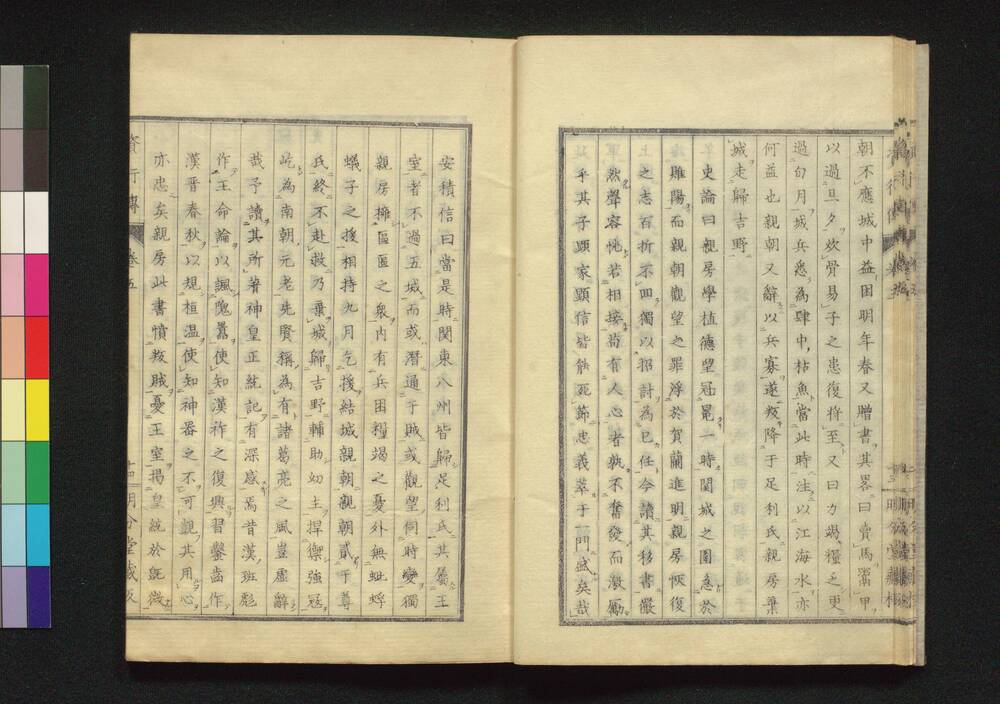 朝不應城中益困明年春又贈書其畧曰賣馬鬻甲
以過旦夕炊骨易子之患復將至又曰力竭糧乏更
過旬月城兵悉為肆中枯魚當此時注以江海水亦
何益也親朝又辭以兵寡遂叛降于足利氏親房棄
城走歸吉野
史論曰親房學植德望冠冕一時關城之圍急於
睢陽而親朝觀望之罪浮於賀蘭進明親房恢復
之志百折不回獨以招討為己任今讀其移書嚴
然聲容恍若相接苟有人心者孰不奮發而激勵
乎其子顕家顕信皆能死節忠義萃于一門盛矣哉
安積信曰當是時関東八州皆歸足利氏其屬王
室者不過五城而或潛通于賊或觀望伺時變獨
親房擁區區之衆内有兵困糧竭之憂外無蚍蜉
蟻子之援相持九月乞援結城親朝親朝貳于尊
氏終不赴救乃棄城歸吉野輔助幼主捍禦強冠
屹為南朝元老先賢稱為有諸葛亮之風豈虛辭
哉予讀其所著神皇正統記有深感焉昔漢班彪
作王命論以諷隗囂使知漢祚之復興習鑿齒作
漢晋春秋以規桓温使知神器之不可覬其用心
亦忠矣親房此書憤叛賊憂王室揭皇統於既微
資行傳 卷五
明分堂藏版